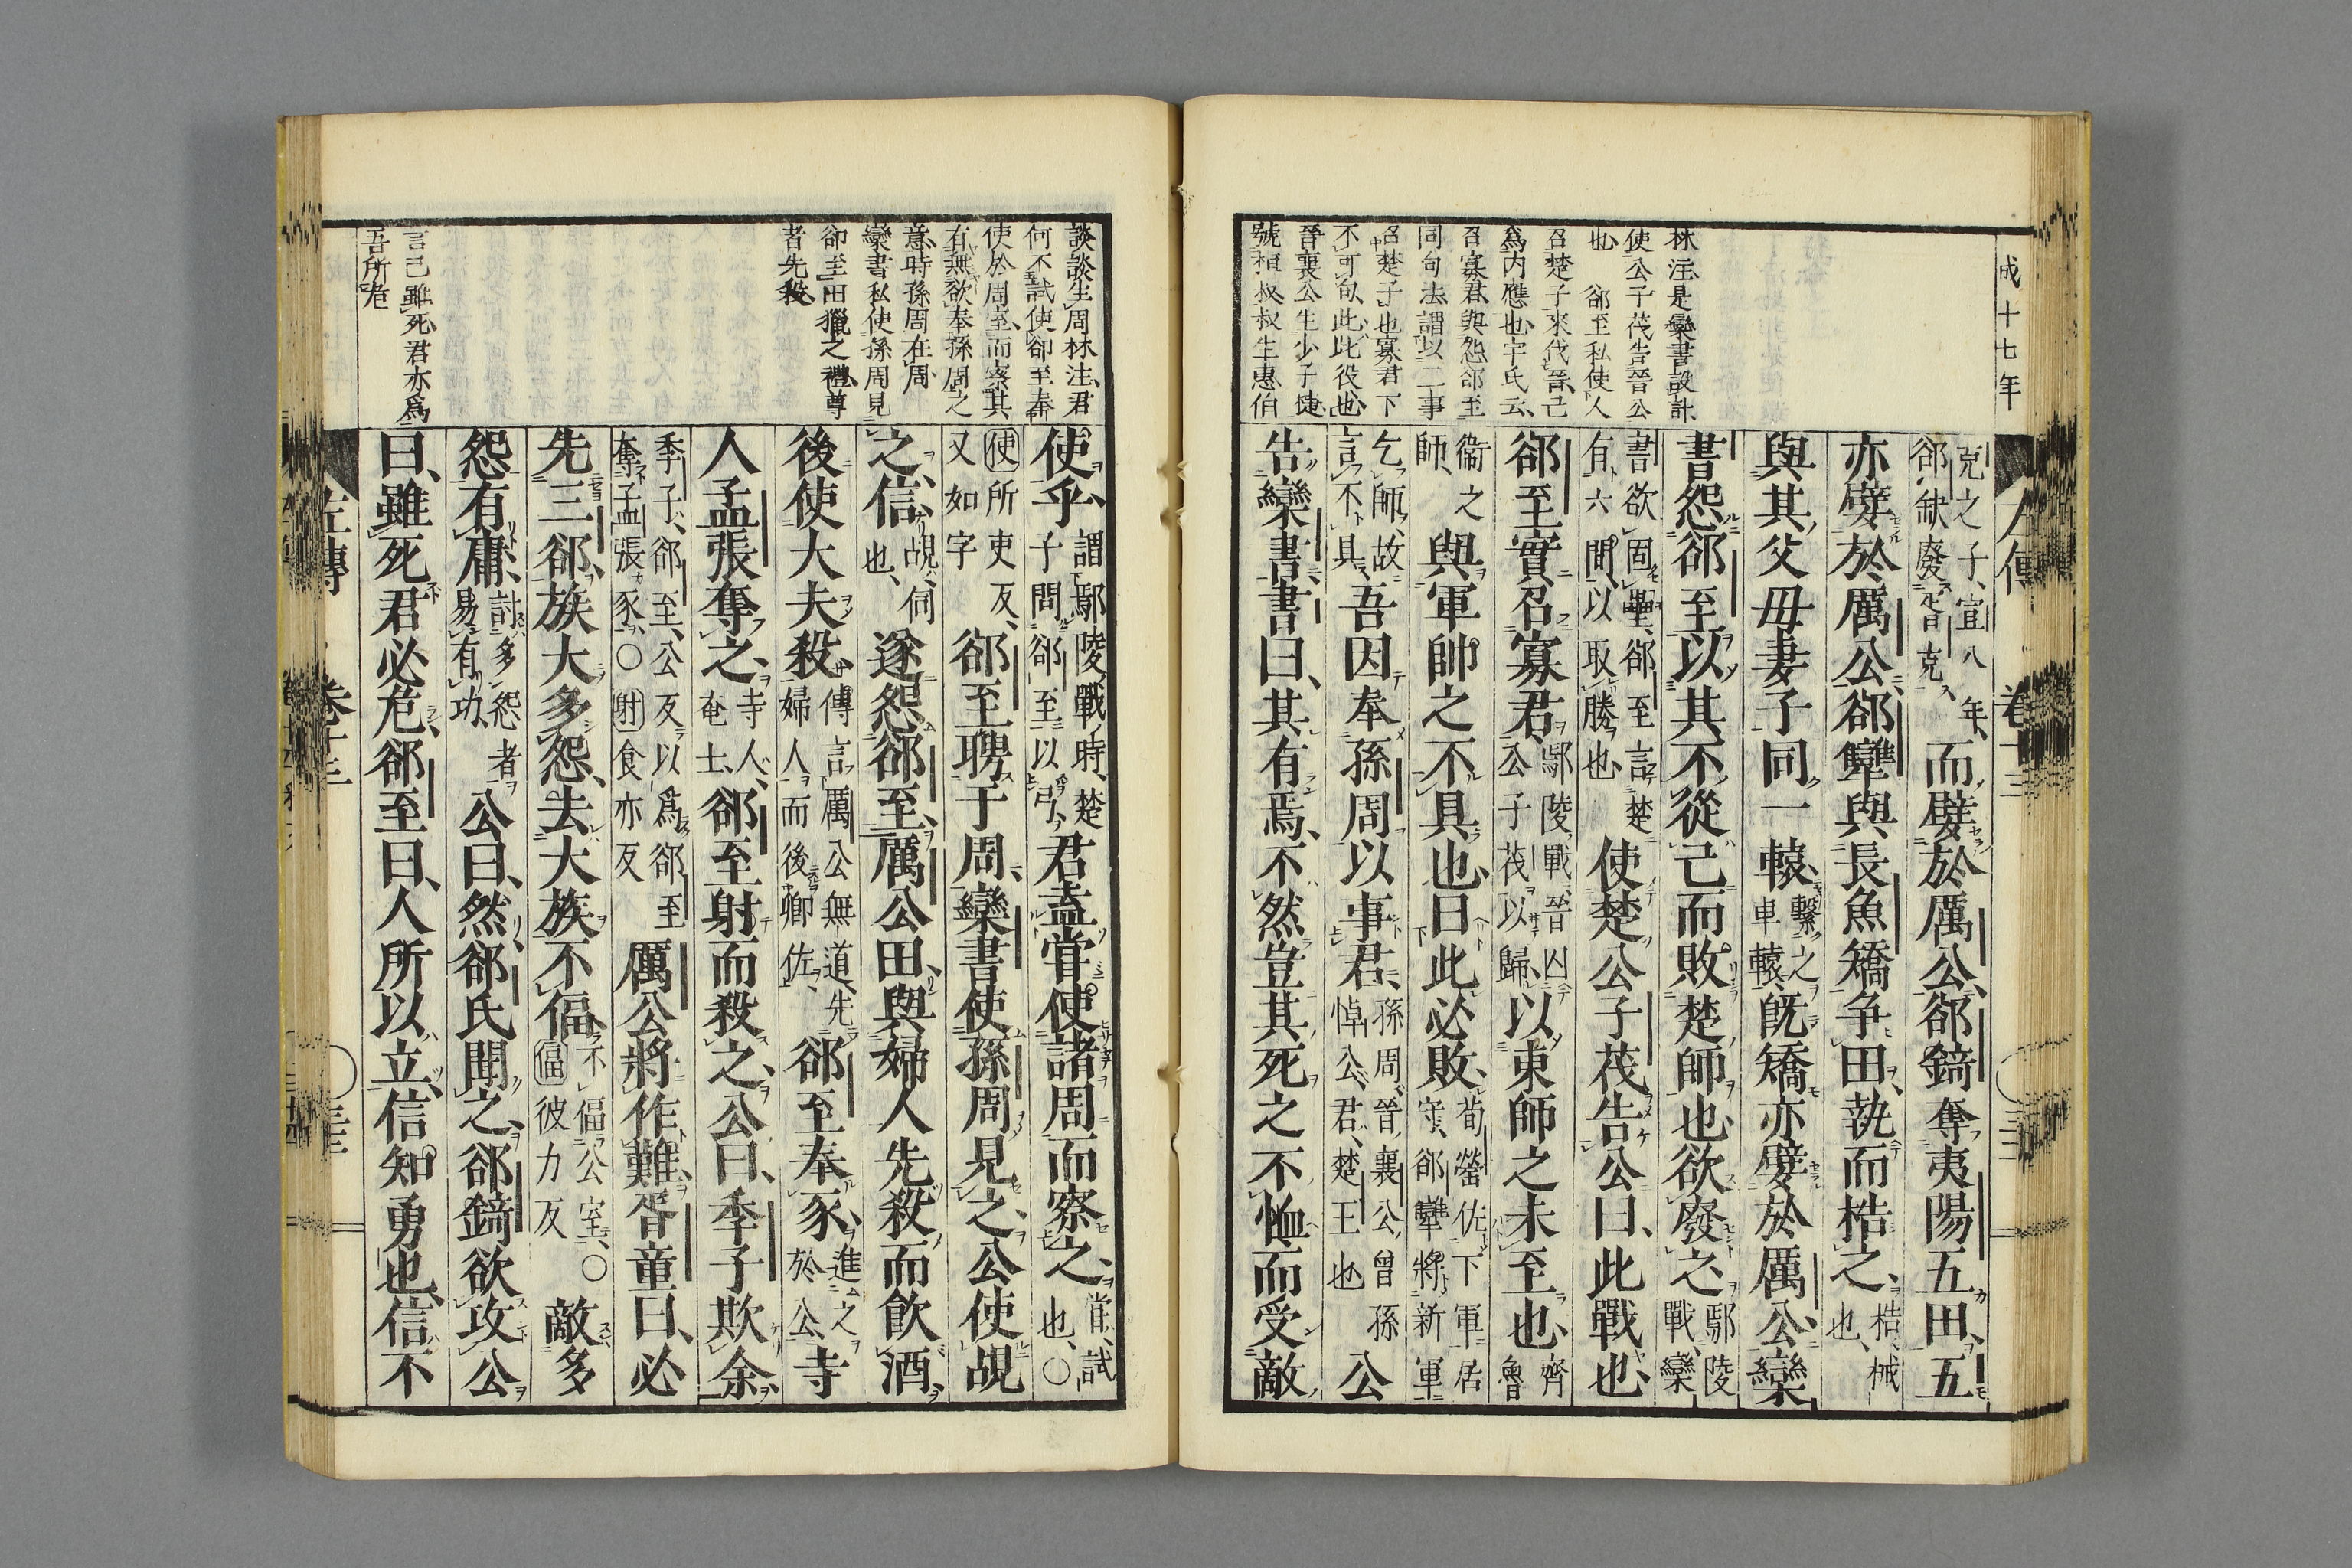 成十七年
林注是欒書設計
使公子茷告晉公
也 郤至私使人
召楚子來伐晉己
爲内應也宇氏云
召寡君與怨郤至
同句法謂以二事
召楚子也寡君下
不可句此此役也
晉襄公生少子捷
號桓叔叔生惠伯
左傳 卷十三
克之子宣八年
郤缺廢胥克
而嬖於厲公郤錡奪夷陽五田五
亦嬖於厲公郤犫與長魚矯争田執而梏之
梏械
也
與其父母妻子同一轅
繫之
車轅
旣矯亦嬖於厲公欒
書怨郤至以其不從己而敗楚師也欲廢之
鄢陵
戰欒
書欲固壘郤至言楚
有六間以取勝也
使楚公子茷告公曰此戰也
郤至實召寡君
鄢陵戰晉囚
公子茷以歸
以東師之未至也
齊
魯
衞之
師
與軍帥之不具也曰此必敗
荀罃佐下軍居
守郤犫將新軍
乞師故
言不具
吾因奉孫周以事君
孫周晉襄公曾孫
悼公君楚王也
公
告欒書書曰其有焉不然豈其死之不恤而受敵
談談生周林注君
何不試使郤至奉
使於周室而察其
有無欲奉孫周之
意時孫周在周
欒書私使孫周見
郤至田獵之禮尊
者先殺
言己雖死君亦爲
吾所危
使乎
謂鄢陵戰時楚
子問郤至以弓
君盍嘗使諸周而察之
嘗試
也○
使所吏反
又如字
郤至聘于周欒書使孫周見之公使覘
之信
覘伺
也
遂怨郤至厲公田與婦人先殺而飲酒
後使大夫殺
傳言厲公無道先
婦人而後卿佐
郤至奉豕
進之
於公
寺
人孟張奪之
寺人
奄士
郤至射而殺之公曰季子欺余
季子郤至公反以爲郤至
奪孟張豕○射食亦反
厲公將作難胥童曰必
先三郤族大多怨去大族不偪
不偪公室○
偪彼力反
敵多
怨有庸
討多怨者
易有功
公曰然郤氏聞之郤錡欲攻公
曰雖死君必危郤至曰人所以立信知勇也信不
左傳 卷十三